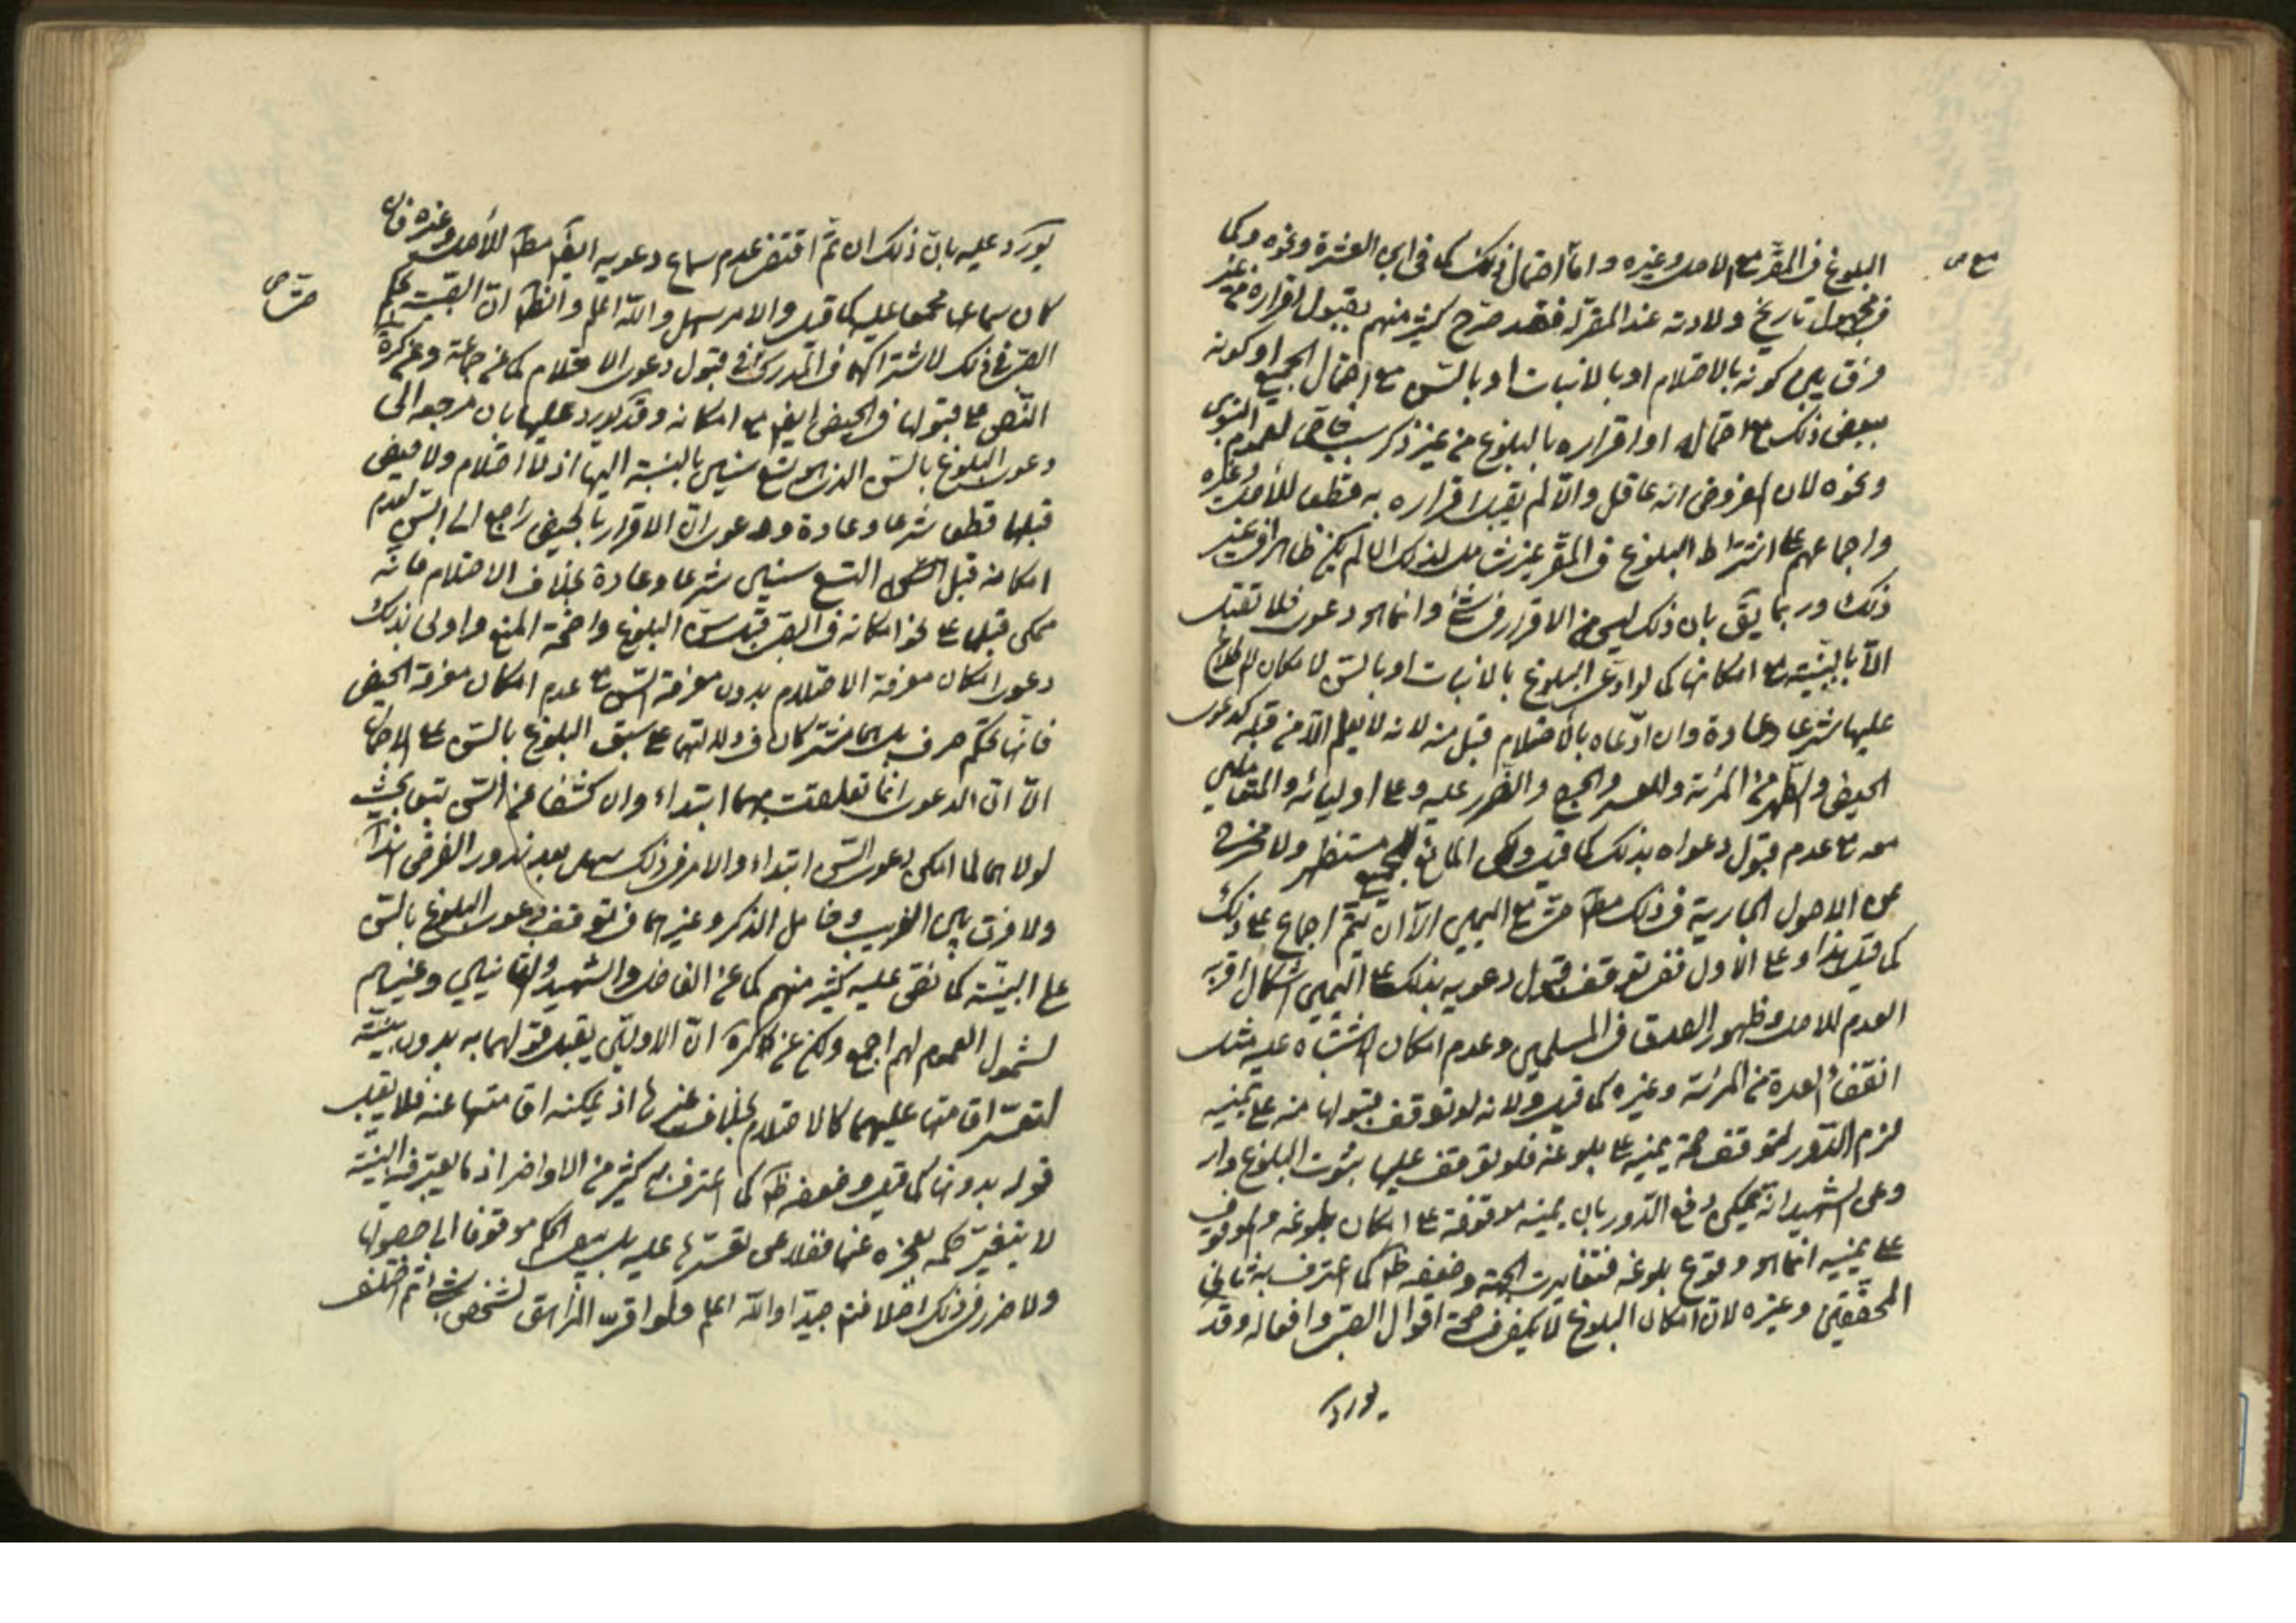 البلوغ في المقر مع الاصل وغيره واما احتمال ذلك كما في ابن العشرة ونحوه وكما
في مجهول تاريخ ولادته عند المقر له فقد صرح كثير منهم بقبول اقراره من غير
فرق بين كونه بالاحتلام او بالانبات او بالسن مع احتمال الجميع او كونه
ببعض ذلك مع احتماله او اقراره بالبلوغ من غير ذكر سبب خاص لعموم النبوي
ونحوه لان المفروض انه عاقل والا لم يقبل اقراره به قطعا للاصل وغيره
واجماعهم على اشتراط البلوغ في المقر غير شامل لذلك ان لم يكن ظاهرا في غير
ذلك وربما يق بان ذلك ليس من الاقرار في شئ وانما هو دعوى فلا تقبل
الا بالبينة مع امكانها كما لو ادعى البلوغ بالانبات او بالسن لامكان الاطلاع
عليها شرعا وعادة وان ادعاه بالاحتلام قبل منه لانه لا يعلم الا من قبله كدعوى
الحيض والطهر من المرئة وللعسر والحرج والضرر عليه وعلى اوليائه والمتعاملين
معه مع عدم قبول دعواه بذلك كما قيل ولكن المانع للجميع مستظهر ولا مخرج
عن الاصول الجارية في ذلك مط حتى مع اليمين الا ان يتم اجماع على ذلك
كما قيل هذا وعلى الاول ففي توقف قبول دعويه بذلك على اليمين اشكال اقربه
العدم للاصل وظهور الصدق في المسلمين وعدم امكان الاشتباه عليه مثل
انقضاء العدة من المرئة وغيره كما قيل ولانه لو توقف قبولها منه على يمينه
لزم الدور لتوقف صحة يمينه على بلوغه فلو توقف عليها ثبوت البلوغ دار
وعن الشهيد انه يمكن دفع الدور بان يمينه موقوفة على امكان بلوغه والموقوف
على يمينه انما هو وقوع بلوغه فتغايرت الجهة وضعفه ظ كما اعترف به ثاني
المحققين وغيره لان امكان البلوغ لا يكفي في صحة اقوال الصبي وافعاله وقد
يورد
يورد عليه بان ذلك ان تم اقتضى عدم سماع دعويه ايض مط للاصل وغيره فان
كان سماعها مجمعا عليه كما قيل والامر سهل والله اعلم والظ ان الصبية بحكم
الصبي في ذلك لاشتراكهما في المدرك في قبول دعوى الاحتلام كما عن جماعة وعن كره
النص على قبولها في الحيض ايض مع امكانه وقد يورد عليها بان مرجعه الى
دعوى البلوغ بالسن الذي هو تسع سنين بالنسبة اليها اذ لا احتلام ولا حيض
قبلها قطعا شرعا وعادة ودعوى ان الاقرار بالحيض راجع الى السن لعدم
امكانه قبل التسع سنين شرعا وعادة بخلاف الاحتلام فانه
ممكن قبلها على نحو امكانه في الصبي قبل سن البلوغ واضحة المنع واولى بذلك
دعوى امكان معرفة الاحتلام بدون معرفة السن مع عدم امكان معرفة الحيض
فانها تحكم صرف بل هما مشتركان في دلالتهما على سبق البلوغ بالسن على الاجمال
الا ان الدعوى انما تعلقت بهما ابتداء وان كشفا عن السن تبعا بحيث
لولاهما لما امكن دعوى السن ابتداء والامر في ذلك سهل بعد ندور الفرض هذا
ولا فرق بين الغريب وخامل الذكر وغيرهما في توقف دعوى البلوغ بالسن
على البينة كما نص عليه كثير منهم كما عن الفاضل والشهيد والثانيين وغيرهم
لشمول العموم لهم اجمع ولكن عن كره ان الاولين يقبل قولهما به بدون بينة
لتعسر اقامتها عليهما كالاحتلام بخلاف غيرها اذ يمكنه اقامتها عنه فلا يقبل
قوله بدونها كما قيل وضعفه ظ كما اعترف به كثير من الاواخر اذ ما يعتبر فيه البينة
لا يتغير حكمه بعجزه عنها فضلا عن تعسرها عليه بل يبقى الحكم موقوفا الى حصولها
ولا ضرر في ذلك اصلا فتم جيدا والله اعلم ولو اقر المراهق لشخص بشئ ثم اختلف